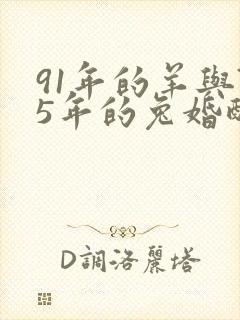 91年的羊與
5年的兔婚
D調洛麗塔